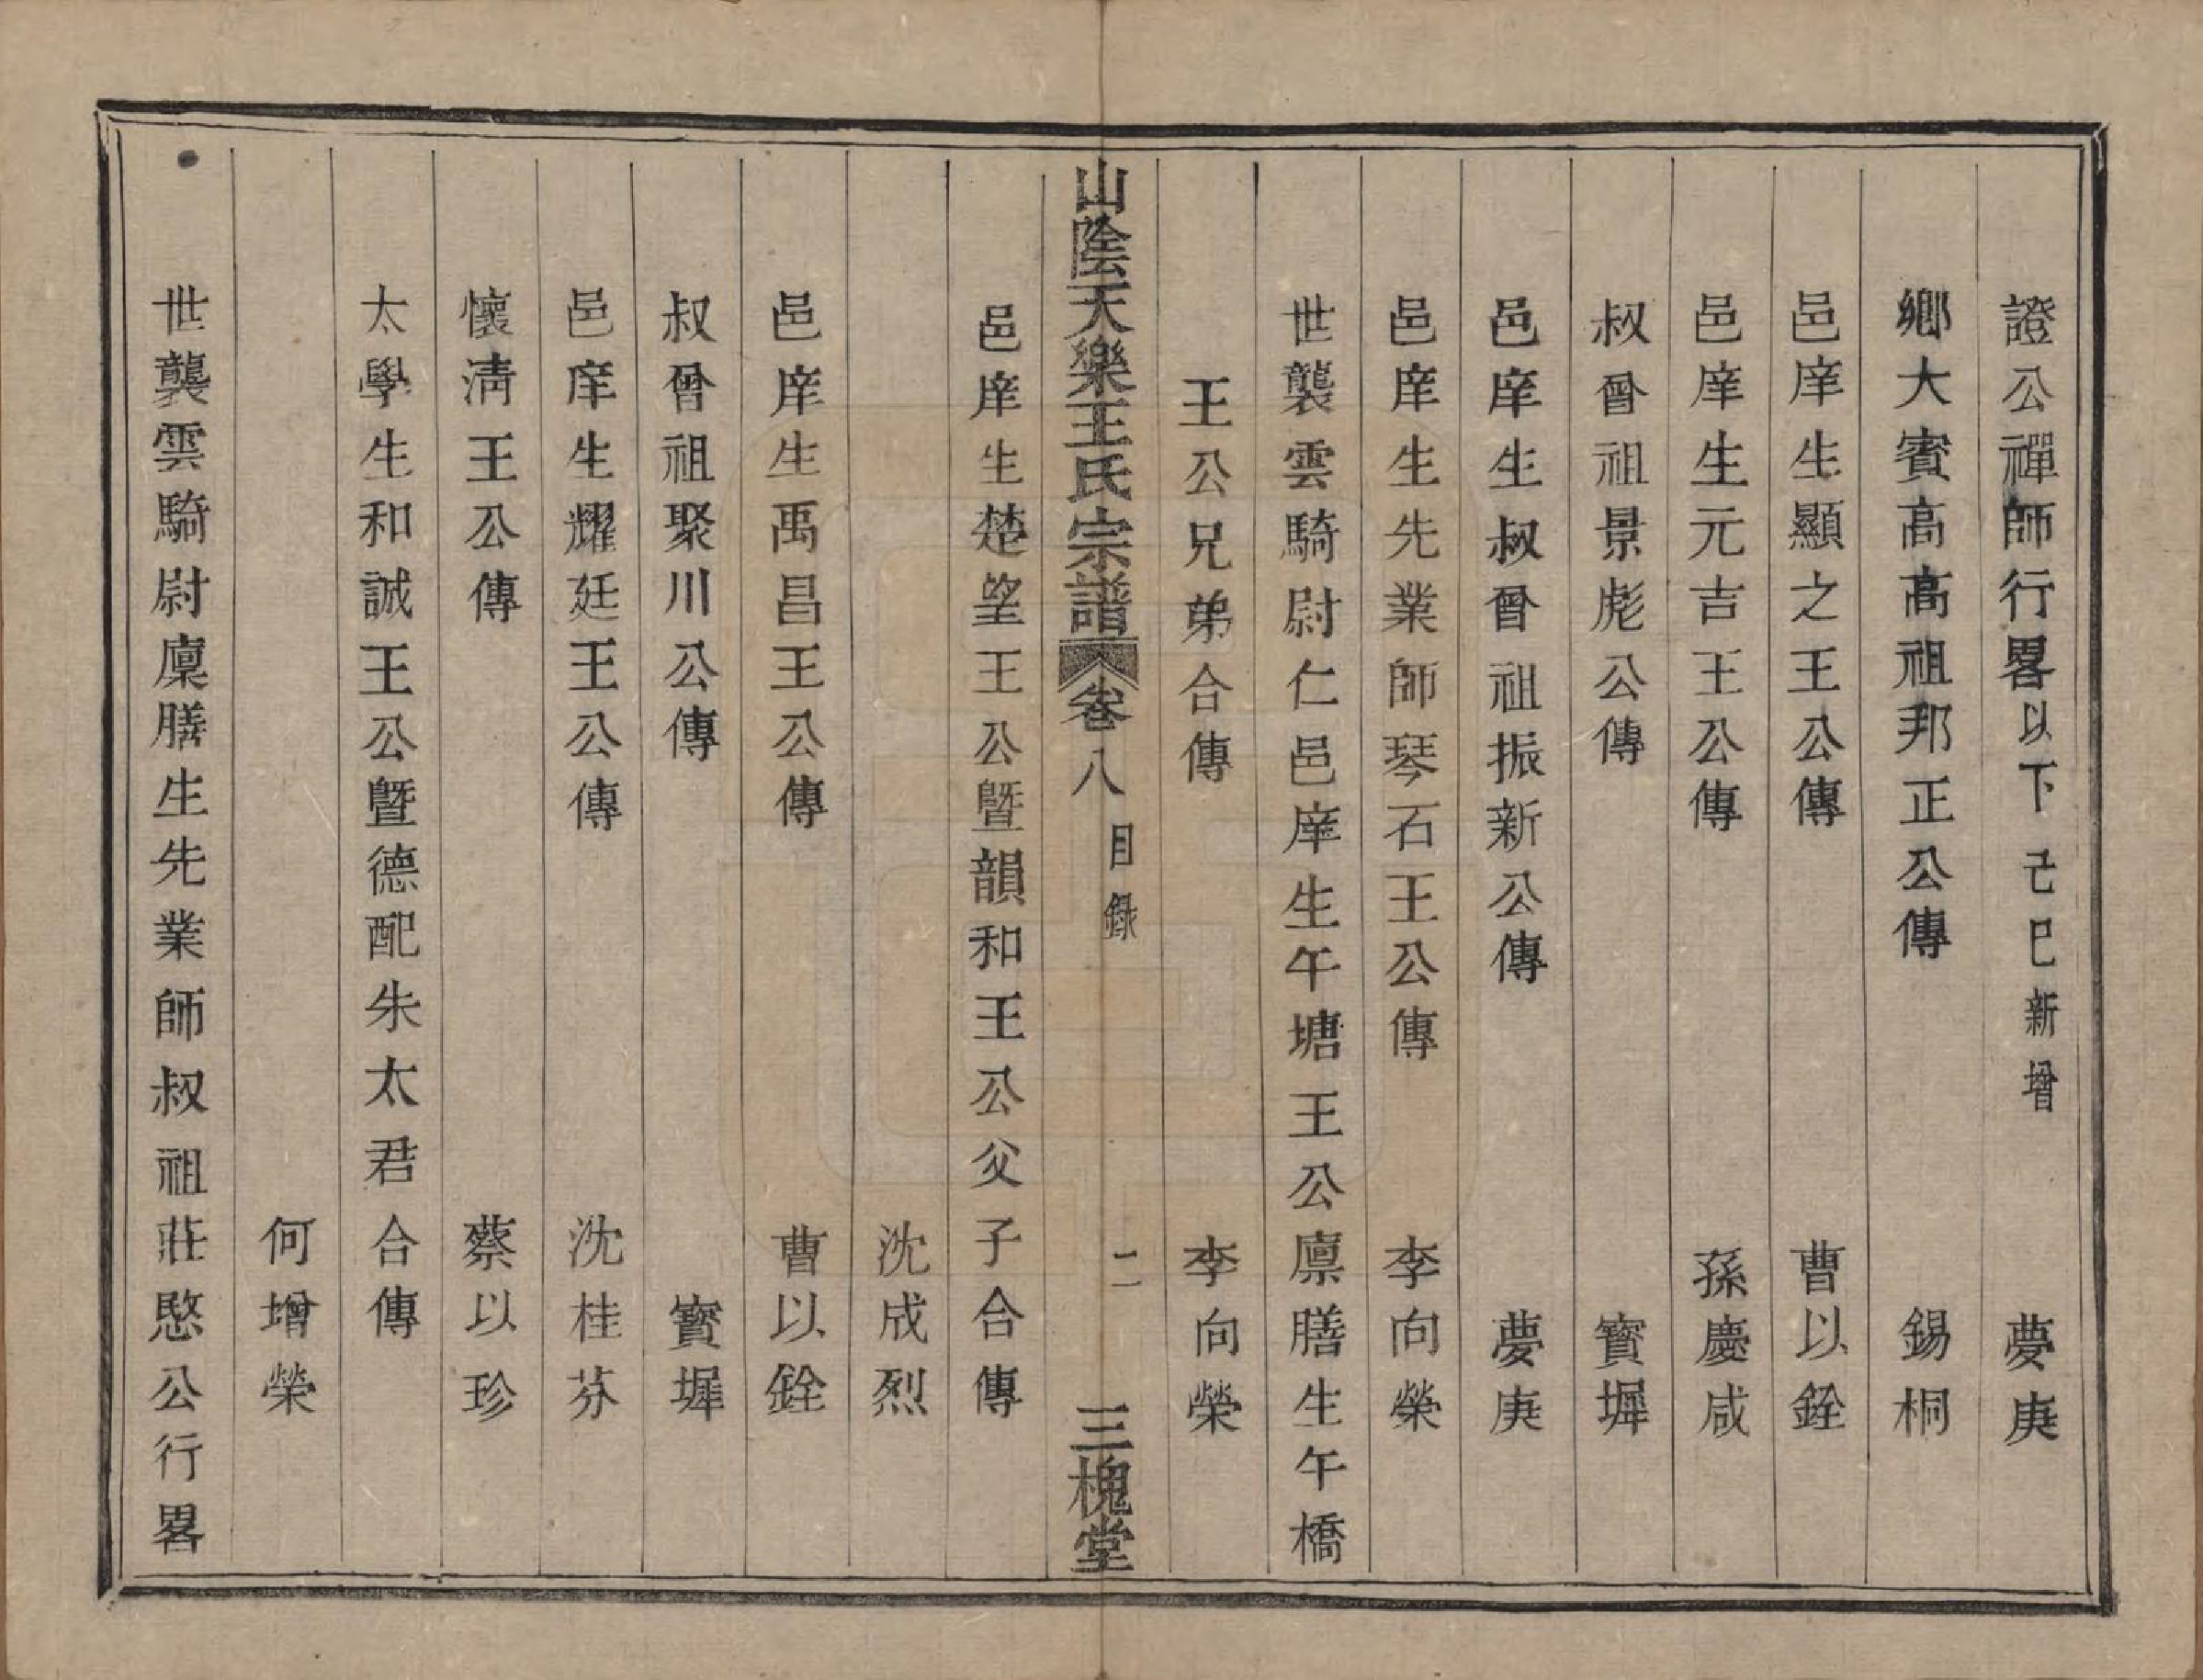 證公禪師行畧以下己巳新增　夢庚
鄉大賓高高祖邦正公傳　錫桐
邑庠生顯之王公傳　曹以銓
邑庠生元吉王公傳　孫慶咸
叔曾祖景彪公傳　寳墀
邑庠生叔曾祖振新公傳　夢庚
邑庠生先業師琴石王公傳　李向榮
世襲雲騎尉仁邑庠生午塘王公廪膳生午橋
王公兄弟合傳　李向榮
山陰天樂王氏宗譜　卷八　目錄　二　三槐堂
邑庠生楚望王公暨韻和王公父子合傳
沈成烈
邑庠生禹昌王公傳　曹以銓
叔曾祖聚川公傳　寳墀
邑庠生耀廷王公傳　沈桂芬
懷清王公傳　蔡以珍
太學生和誠王公暨德配朱太君合傳
何增榮
世襲雲騎尉廪膳生先業師叔祖莊愍公行畧